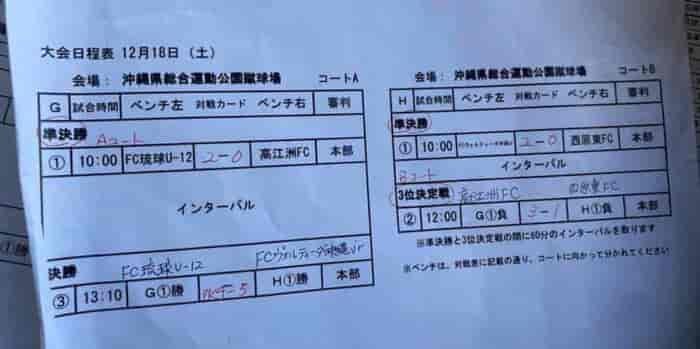 大会日程表 12月18日（土）
会場： 沖縄県総合運動公園蹴球場 コートA
G 試合時間 ベンチ左 対戦カード ベンチ右 審判
準決勝 Aコート
① 10:00 FC琉球U-12 2-0 高江洲FC 本部
インターバル
決勝 FC琉球U-12 FCヴィルディータ沖縄Jr
③ 13:10 G①勝 H①勝 本部
会場： 沖縄県総合運動公園蹴球場 コートB
H 試合時間 ベンチ左 対戦カード ベンチ右 審判
準決勝
① 10:00 2-0 西原東FC 本部
インターバル
Bコート
3位決定戦 高江洲FC 西原東FC
② 12:00 G①負 3-1 H①負 本部
※準決勝と3位決定戦の間に60分のインターバルを取ります
※ベンチは、対戦表に記載の通り、コートに向かって分かれてください